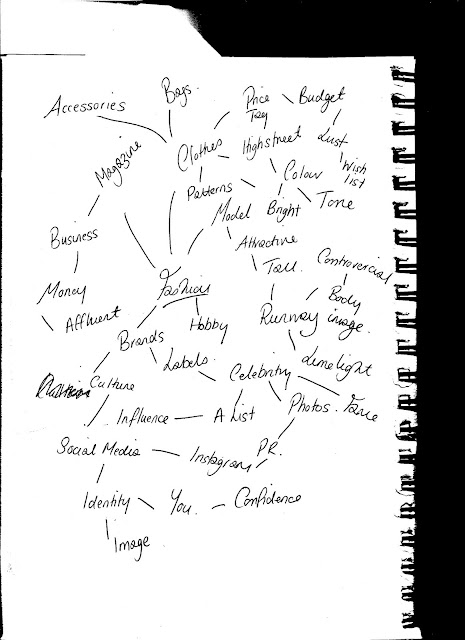 Bags.
Accessories
Price
Tag
Budget
Magazine
Clothes
Highstreet
Lust
Wish
list
Colour
Patterns
Tone
Model
Bright
Business
Attractive
Tall
Controvercial
Money
Fashion
Body
image.
Affluent
Hobby
Runway
Brands
Labels
Limelight
Culture
Celebrity
Influence
A List
Photos.
Social Media
Instagram
PR.
Identity
You.
Confidence
Image